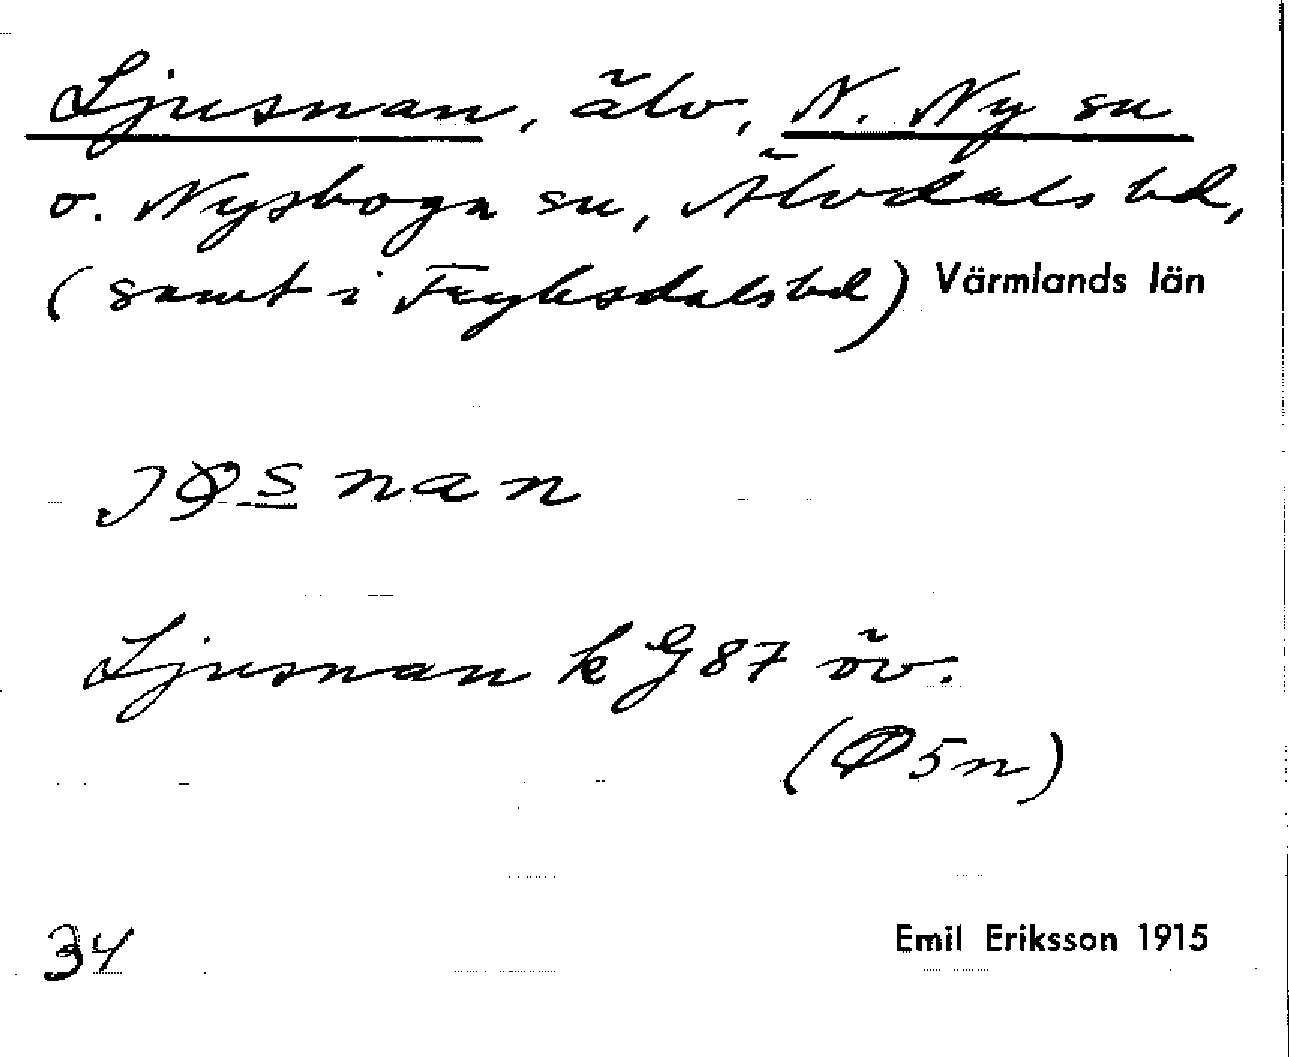 Ljusnan, älv, N. Ny sn
o. Nyskoga sn, Älvdals hd,
(samt i Fryksdals hd) Värmlands län
nan
Ljusnan k G 87 öv.
(Ø 5 n)
34
Emil Eriksson 1915